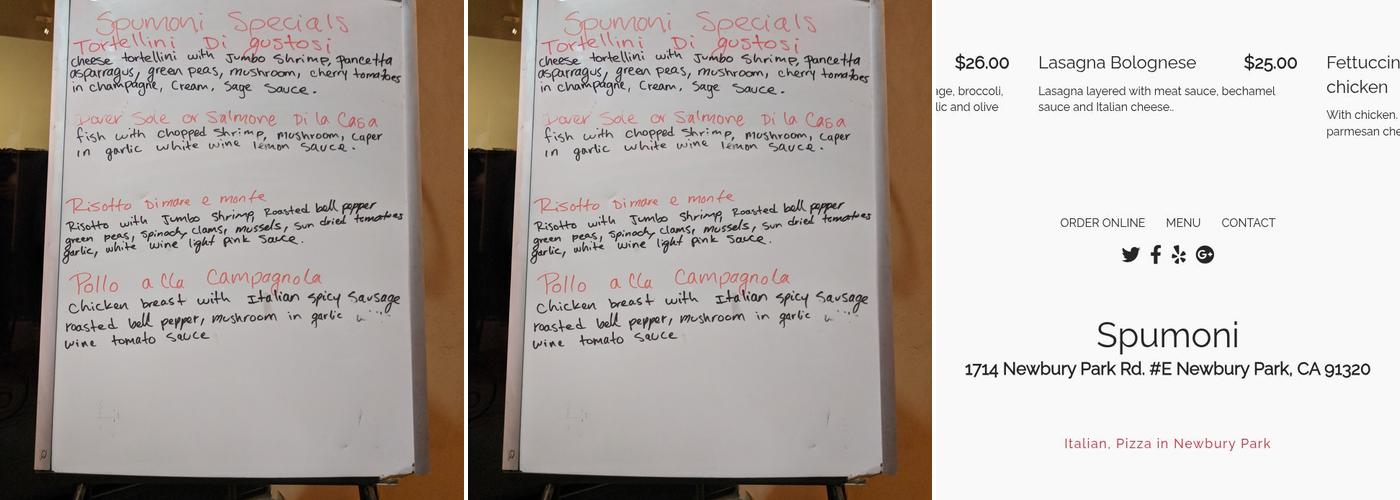 Spumoni Specials
Tortellini Di gustosi
cheese tortellini with Jumbo Shrimp, pancetta
asparragus, green peas, mushroom, cherry tomatoes
in champagne, Cream, Sage Sauce.
Dover Sole or Salmone Di la Casa
fish with chopped Shrimp, mushroom, caper
in garlic white wine lemon sauce.
Risotto Dimare e monte
Risotto with Jumbo Shrimp, Roasted bell pepper
green peas, spinach, clams, mussels, sun dried tomatoes
garlic, white wine light pink sauce.
Pollo a lla Campagnola
Chicken breast with Italian spicy Sausage
roasted bell pepper, mushroom in garlic
wine tomato sauce
Spumoni Specials
Tortellini Di gustosi
cheese tortellini with Jumbo Shrimp, pancetta
asparragus, green peas, mushroom, cherry tomatoes
in champagne, Cream, Sage Sauce.
Dover Sole or Salmone Di la Casa
fish with chopped Shrimp, mushroom, caper
in garlic white wine lemon sauce.
Risotto Dimare e monte
Risotto with Jumbo Shrimp, Roasted bell pepper
green peas, spinach, clams, mussels, sun dried tomatoes
garlic, white wine light pink sauce.
Pollo a lla Campagnola
Chicken breast with Italian spicy Sausage
roasted bell pepper, mushroom in garlic
wine tomato sauce
$26.00
broccoli,
lic and olive
Lasagna Bolognese $25.00
Lasagna layered with meat sauce, bechamel
sauce and Italian cheese..
Fettuccin
chicken
With chicken.
parmesan che
ORDER ONLINE MENU CONTACT
Spumoni
1714 Newbury Park Rd. #E Newbury Park, CA 91320
Italian, Pizza in Newbury Park